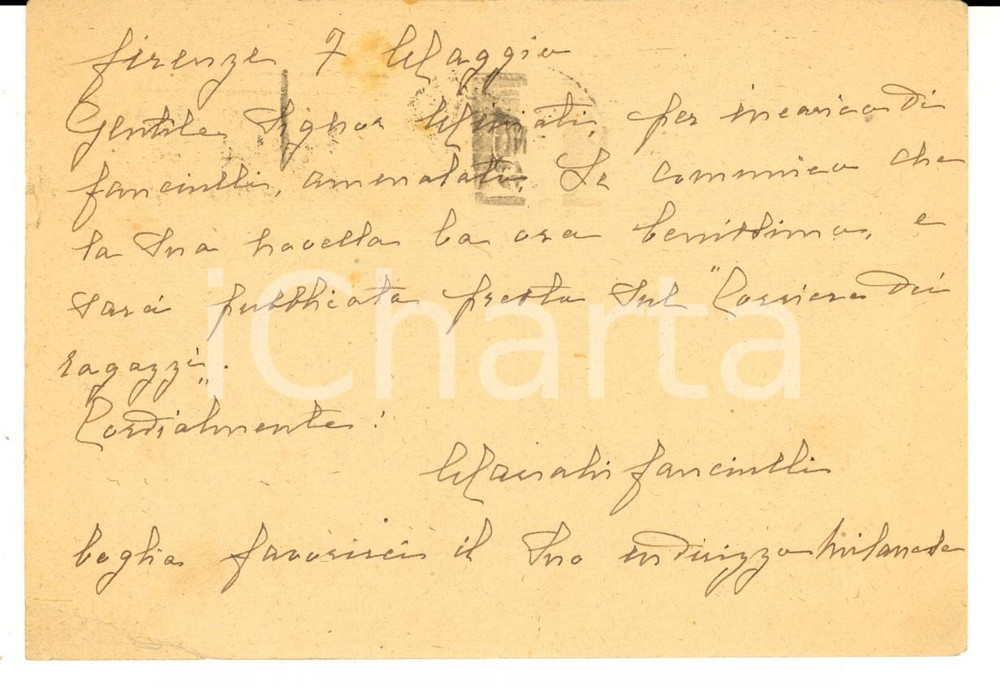 Firenze 7 Maggio
Gentile Signor Miniati, per incarico di
Fanciulli, ammalato, Le comunico che
la Sua novella va ora benissimo, e
sarà pubblicata presto sul "Corriere dei
ragazzi".
Cordialmente:
Fanciulli
Voglia favorirci il Suo indirizzo milanese
iCharta